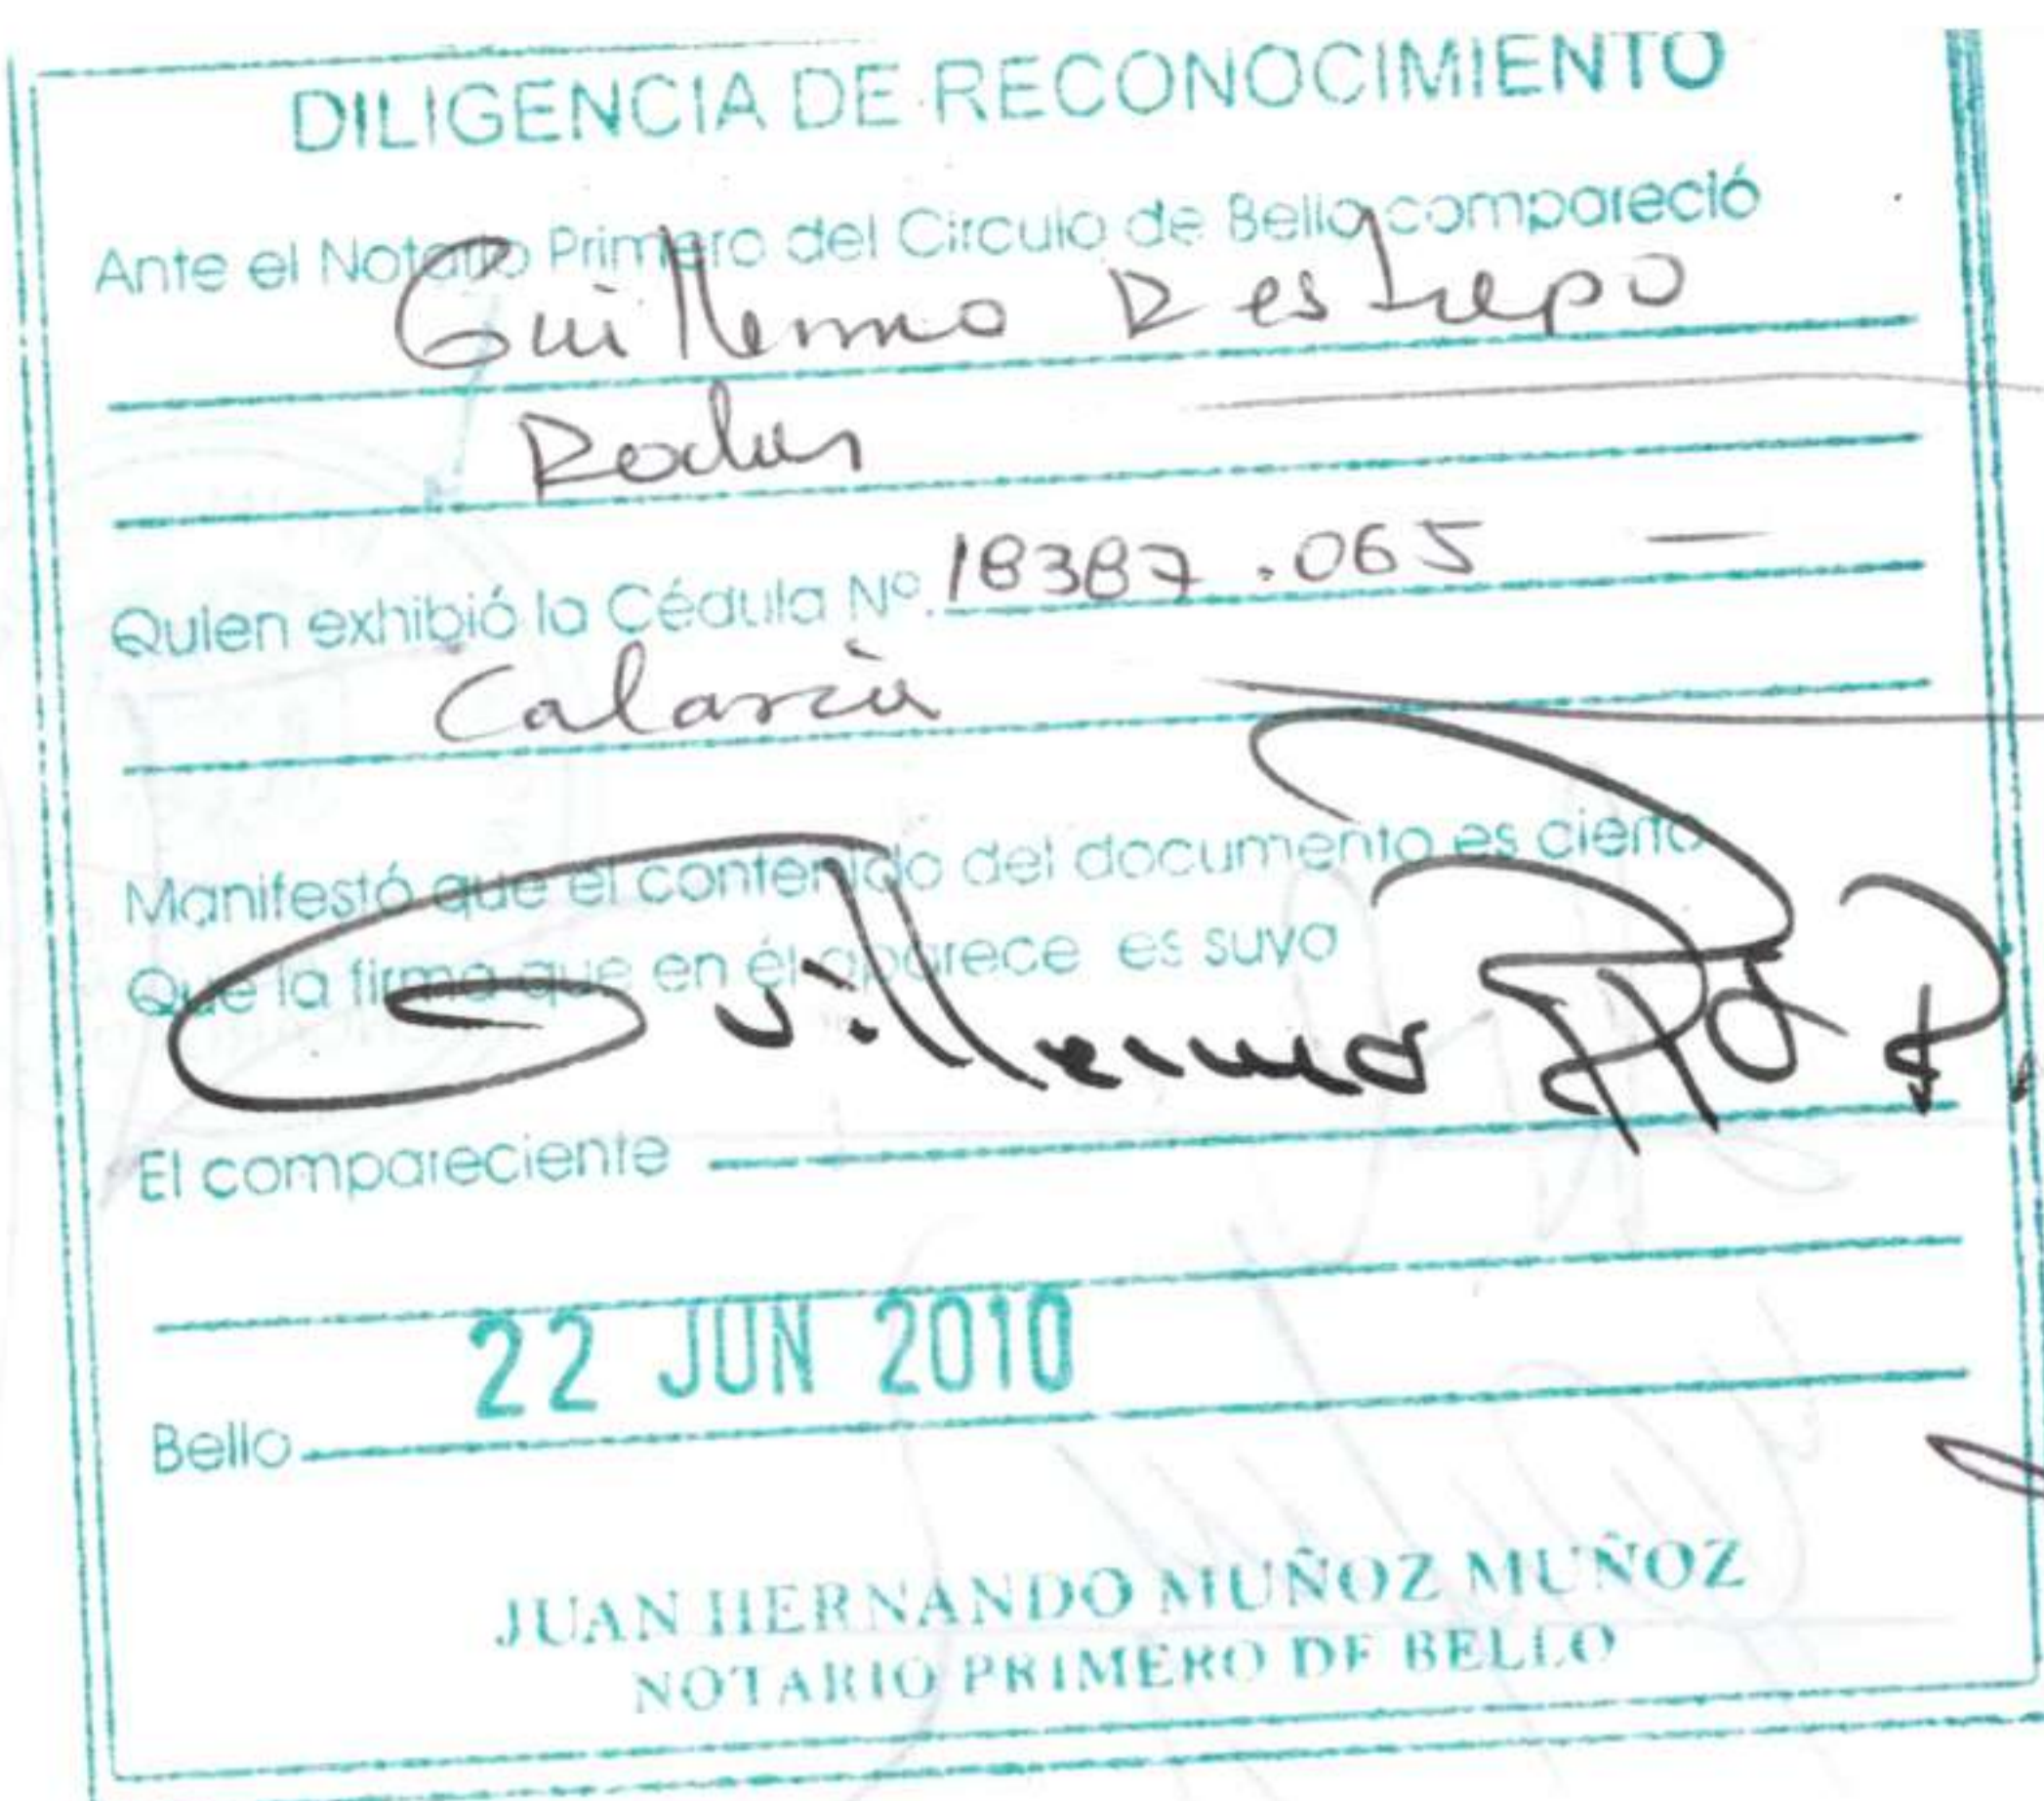 DILIGENCIA DE RECONOCIMIENTO
Ante el Notario Primero del Circulo de Bello compareció
Guillermo Restrepo
Rodas
Quien exhibió la Cédula Nº. 18387.065 —
Calarcá
Manifestó que el contenido del documento es cierto
Que la firma que en él aparece es suya
Guillermo
El compareciente
22 JUN 2010
Bello
JUAN HERNANDO MUÑOZ MUÑOZ
NOTARIO PRIMERO DE BELLO